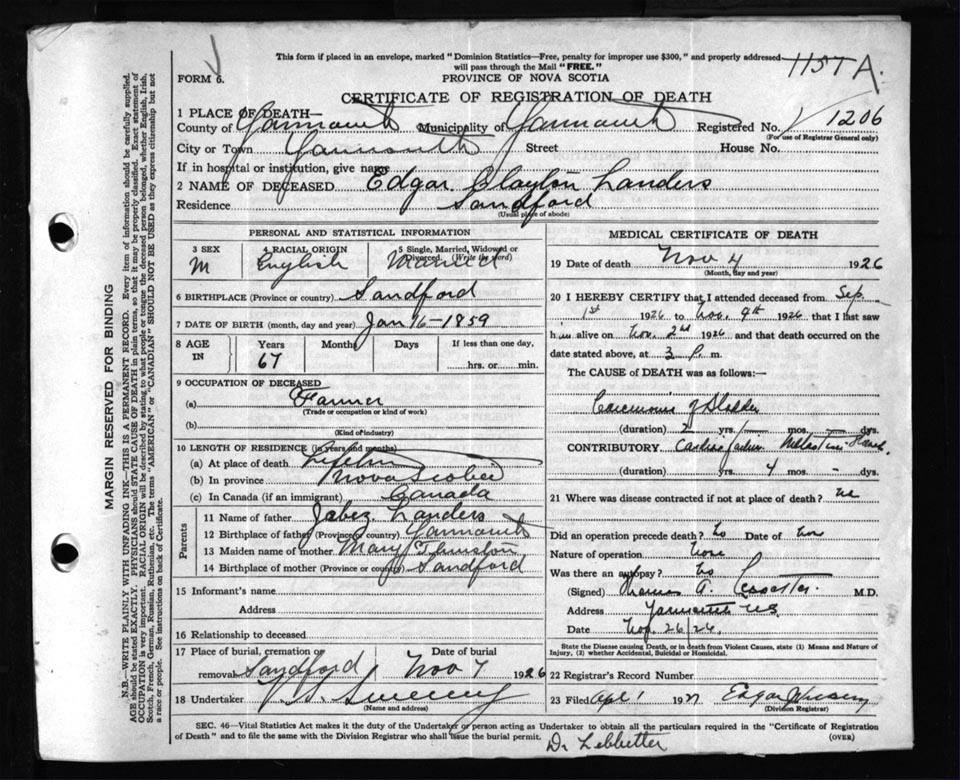 This form if placed in an envelope, marked "Dominion Statistics—Free, penalty for improper use $300," and properly addressed
will pass through the Mail "FREE."
115TA.
FORM 6.
PROVINCE OF NOVA SCOTIA
CERTIFICATE OF REGISTRATION OF DEATH
1 PLACE OF DEATH—
County of Yarmouth Municipality of Yarmouth Registered No. 1206
(For use of Registrar General only)
City or Town Yarmouth Street House No.
If in hospital or institution, give name
2 NAME OF DECEASED Edgar Clayton Landers
Residence Sandford
(Usual place of abode)
PERSONAL AND STATISTICAL INFORMATION
3 SEX 4 RACIAL ORIGIN 5 Single, Married, Widowed or Divorced. (Write the word)
M English Married
6 BIRTHPLACE (Province or country) Sandford
7 DATE OF BIRTH (month, day and year) Jan 16-1859
8 AGE IN Years Months Days If less than one day,
67 hrs. or min.
9 OCCUPATION OF DECEASED
(a) Farmer
(Trade or occupation or kind of work)
(b)
(Kind of industry)
10 LENGTH OF RESIDENCE (in years and months)
(a) At place of death Lifetime
(b) In province Nova Scotia
(c) In Canada (if an immigrant) Canada
Parents
11 Name of father Jabez Landers
12 Birthplace of father (Province or country) Yarmouth
13 Maiden name of mother Mary Thurston
14 Birthplace of mother (Province or country) Sandford
15 Informant's name
Address
16 Relationship to deceased
17 Place of burial, cremation or removal Date of burial
Sandford Nov 7 1926
18 Undertaker V. S. Sweeny
(Name and address)
MEDICAL CERTIFICATE OF DEATH
19 Date of death Nov 4 1926
(Month, day and year)
20 I HEREBY CERTIFY that I attended deceased from Sep.
1st 1926 to Nov. 4th 1926 that I last saw
him alive on Nov. 2nd 1926 and that death occurred on the
date stated above, at 3 P. m.
The CAUSE of DEATH was as follows:—
Carcinoma of Bladder
(duration) 2 yrs. mos. dys.
CONTRIBUTORY Cardiac failure
(duration) yrs. 4 mos. - dys.
21 Where was disease contracted if not at place of death?
Did an operation precede death? No Date of
Nature of operation None
Was there an autopsy? No
(Signed) Thomas A. M.D.
Address Yarmouth N.S.
Date Nov. 26/26.
State the Disease causing Death, or in death from Violent Causes, state (1) Means and Nature of
Injury, (2) whether Accidental, Suicidal or Homicidal.
22 Registrar's Record Number
23 Filed Apl 1 1927 Edgar
(Division Registrar)
SEC. 46—Vital Statistics Act makes it the duty of the Undertaker or person acting as Undertaker to obtain all the particulars required in the "Certificate of Registration
of Death" and to file the same with the Division Registrar who shall issue the burial permit.
(OVER)
Dr Lebbetter
MARGIN RESERVED FOR BINDING
N.B.—WRITE PLAINLY WITH UNFADING INK—THIS IS A PERMANENT RECORD. Every item of information should be carefully supplied.
AGE should be stated EXACTLY. PHYSICIANS should STATE CAUSE OF DEATH in plain terms, so that it may be properly classified. Exact statement of
OCCUPATION is very important. RACIAL ORIGIN will be described by stating to what people or tongue the deceased person belonged, whether English, Irish,
Scotch, French, German, Russian, Ruthenian, etc. The terms "AMERICAN" or "CANADIAN" SHOULD NOT BE USED as they express citizenship but not
a race or people. See instructions on back of Certificate.